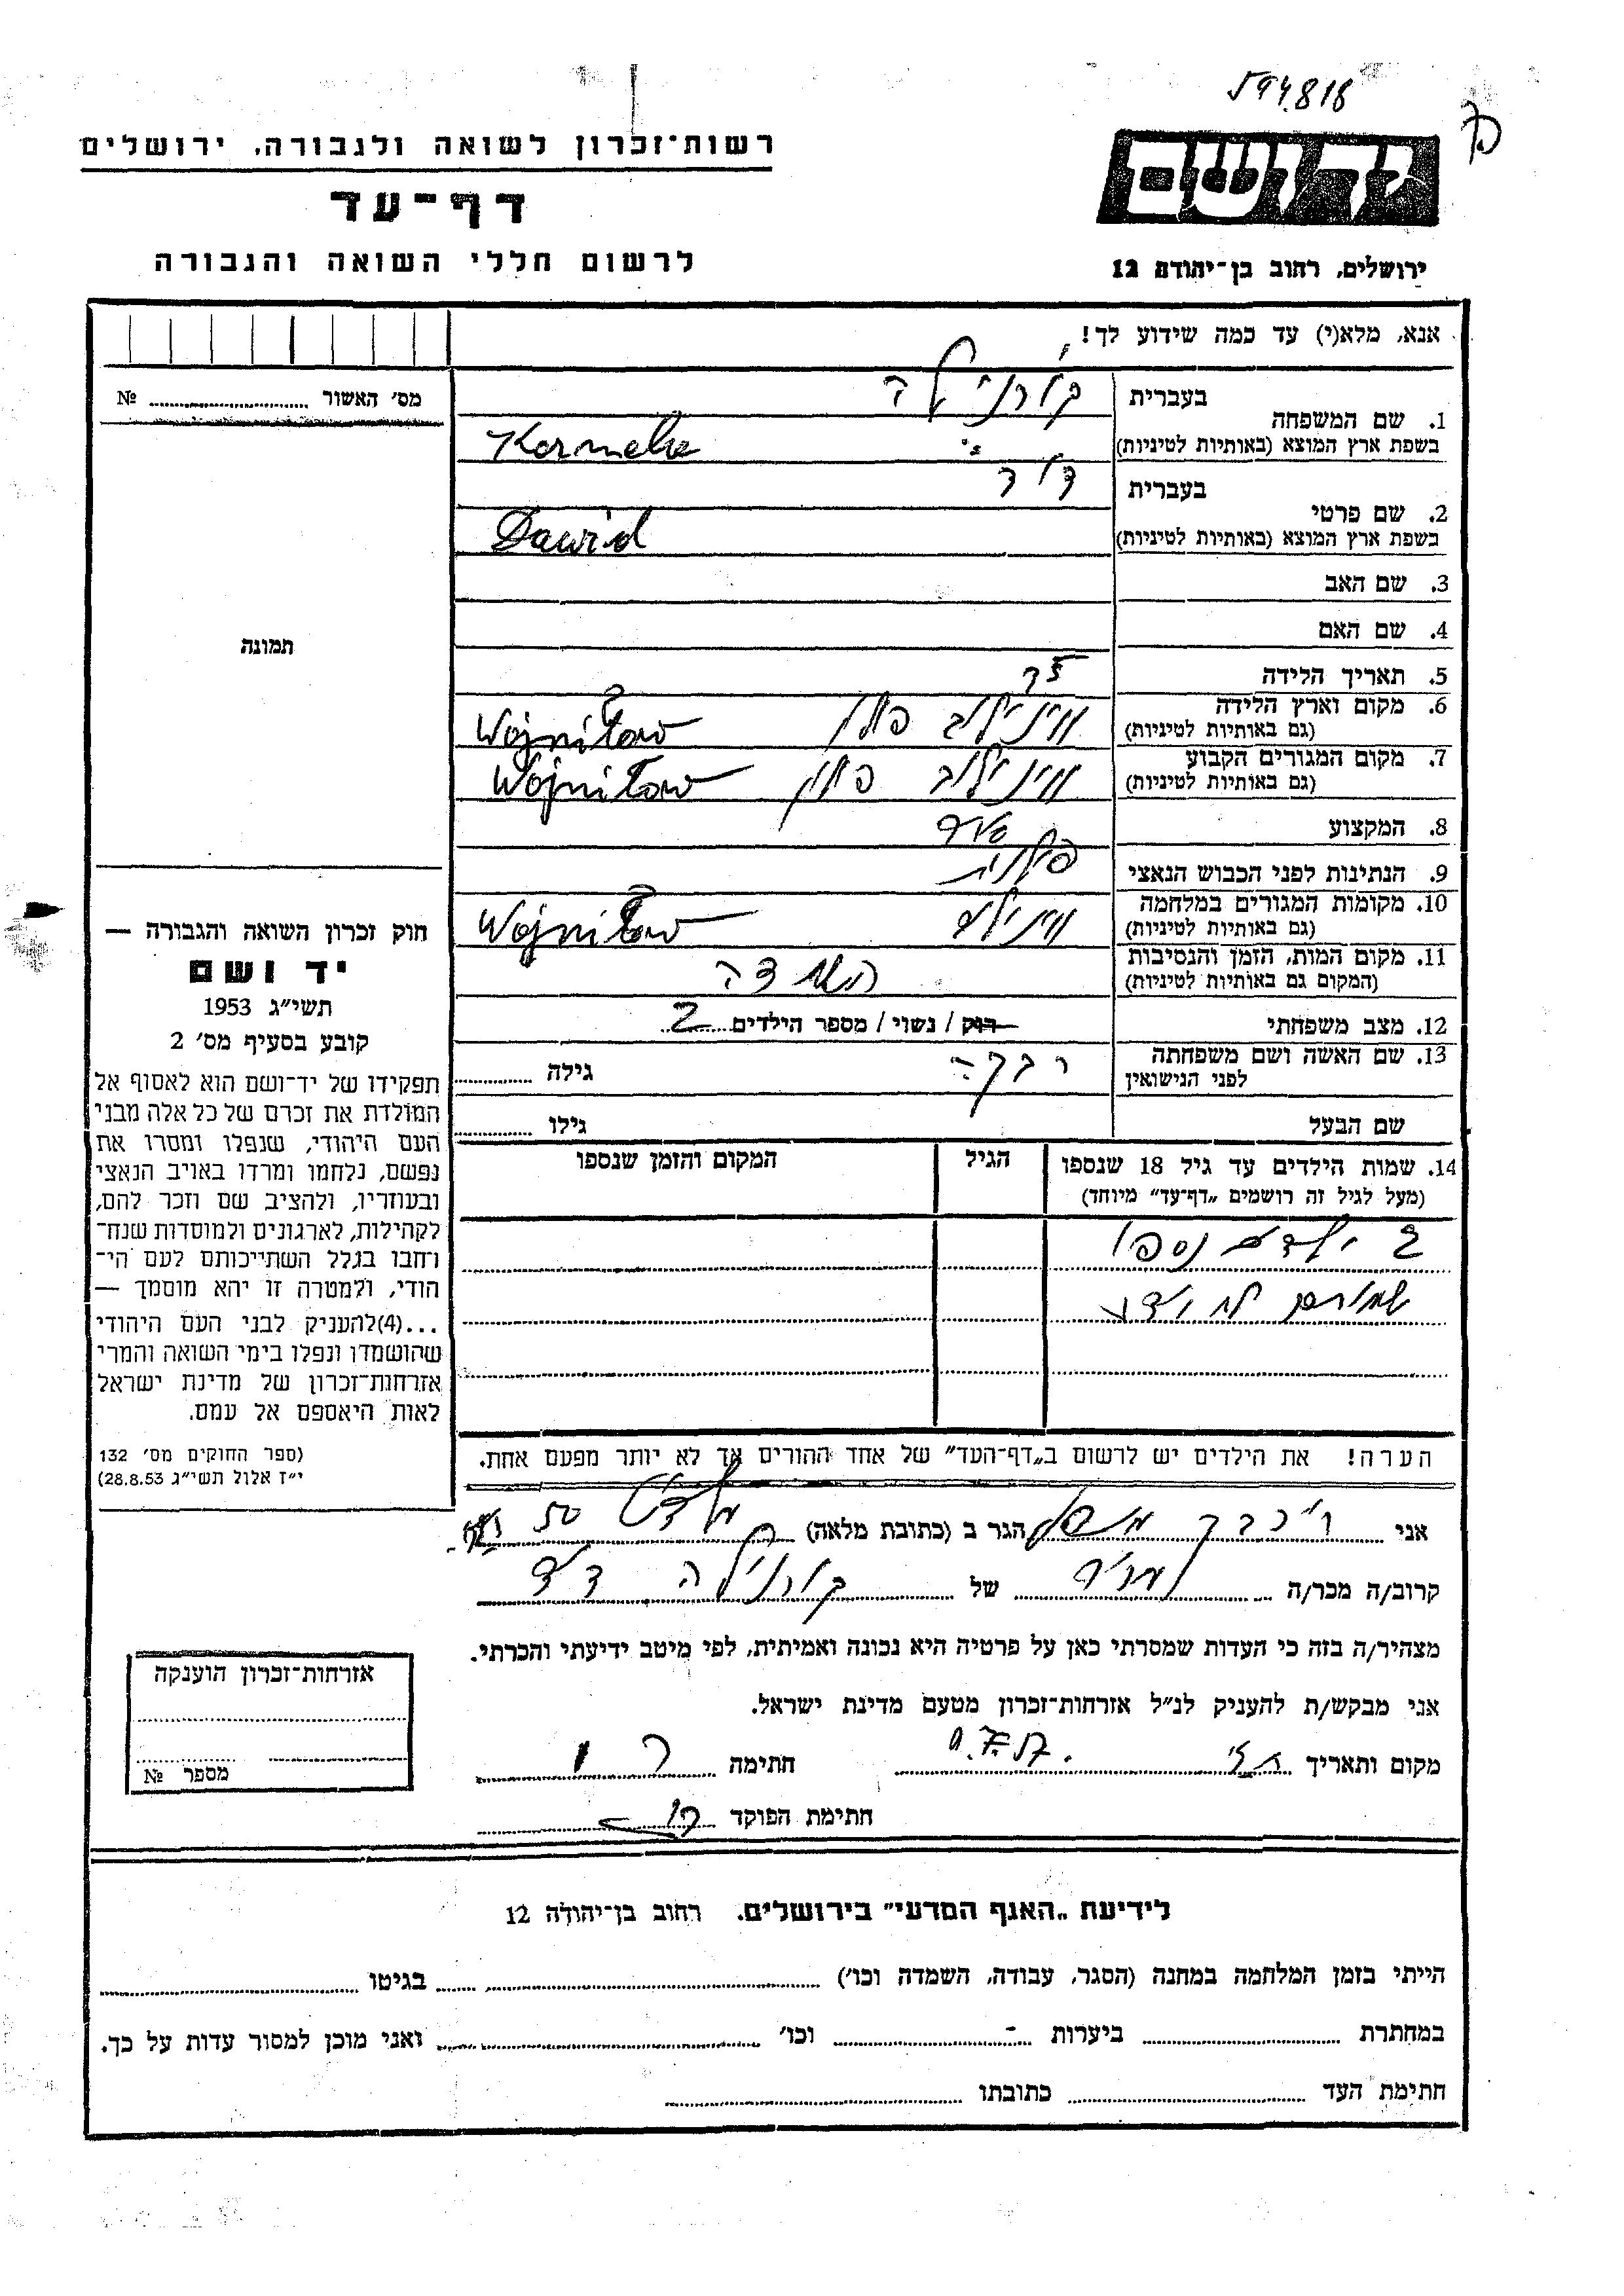 594818
רשות־זכרון לשואה ולגבורה, ירושלים
דף־עד
לרשום חללי השואה והגבורה
יד ושם
ירושלים, רחוב בן־יהודה 12
אנא, מלא(י) עד כמה שידוע לך!
מס׳ האשור № 
תמונה
חוק זכרון השואה והגבורה —
יד ושם
תשי״ג 1953
קובע בסעיף מס׳ 2
תפקידו של יד־ושם הוא לאסוף אל
המולדת את זכרם של כל אלה מבני
העם היהודי, שנפלו ומסרו את
נפשם, נלחמו ומרדו באויב הנאצי
ובעוזריו, ולהציב שם וזכר להם,
לקהילות, לארגונים ולמוסדות שנח־
רחבו בגלל השתייכותם לעם הי־
הודי, ולמטרה זו יהא מוסמך —
...(4)להעניק לבני העם היהודי
שהושמדו ונפלו בימי השואה והמרי
אזרחות־זכרון של מדינת ישראל
לאות היאספם אל עמם.
(ספר החוקים מס׳ 132
י״ז אלול תשי״ג 28.8.53)
1. שם המשפחה
בעברית קורנילה
בשפת ארץ המוצא (באותיות לטיניות)
2. שם פרטי
בעברית דוד
בשפת ארץ המוצא (באותיות לטיניות) Dawid
3. שם האב
4. שם האם
5. תאריך הלידה
6. מקום וארץ הלידה פולין Wojnitow
(גם באותיות לטיניות)
7. מקום המגורים הקבוע פולין Wojnitow
(גם באותיות לטיניות)
8. המקצוע
9. הנתינות לפני הכבוש הנאצי פולנית
10. מקומות המגורים במלחמה Wojnitow
(גם באותיות לטיניות)
11. מקום המות, הזמן והנסיבות
(המקום גם באותיות לטיניות)
12. מצב משפחתי רוק / נשוי / מספר הילדים 2
13. שם האשה ושם משפחתה רבקה גילה
לפני הנישואין
שם הבעל גילו
14. שמות הילדים עד גיל 18 שנספו הגיל המקום והזמן שנספו
(מעל לגיל זה רושמים „דף־עד״ מיוחד)
2 ילדים נספו
שמותם לא ידוע
הערה! את הילדים יש לרשום ב„דף־העד״ של אחד ההורים אך לא יותר מפעם אחת.
אני הגר ב (כתובת מלאה)
קרוב/ה מכר/ה של קורנילה דוד
מצהיר/ה בזה כי העדות שמסרתי כאן על פרטיה היא נכונה ואמיתית, לפי מיטב ידיעתי והכרתי.
אני מבקש/ת להעניק לנ״ל אזרחות־זכרון מטעם מדינת ישראל.
מקום ותאריך חתימה
חתימת הפוקד
אזרחות־זכרון הוענקה
מספר №
לידיעת „האגף המדעי״ בירושלים. רחוב בן־יהודה 12
הייתי בזמן המלחמה במחנה (הסגר, עבודה, השמדה וכו׳) בגיטו
במחתרת ביערות וכו׳ ואני מוכן למסור עדות על כך.
חתימת העד כתובתו